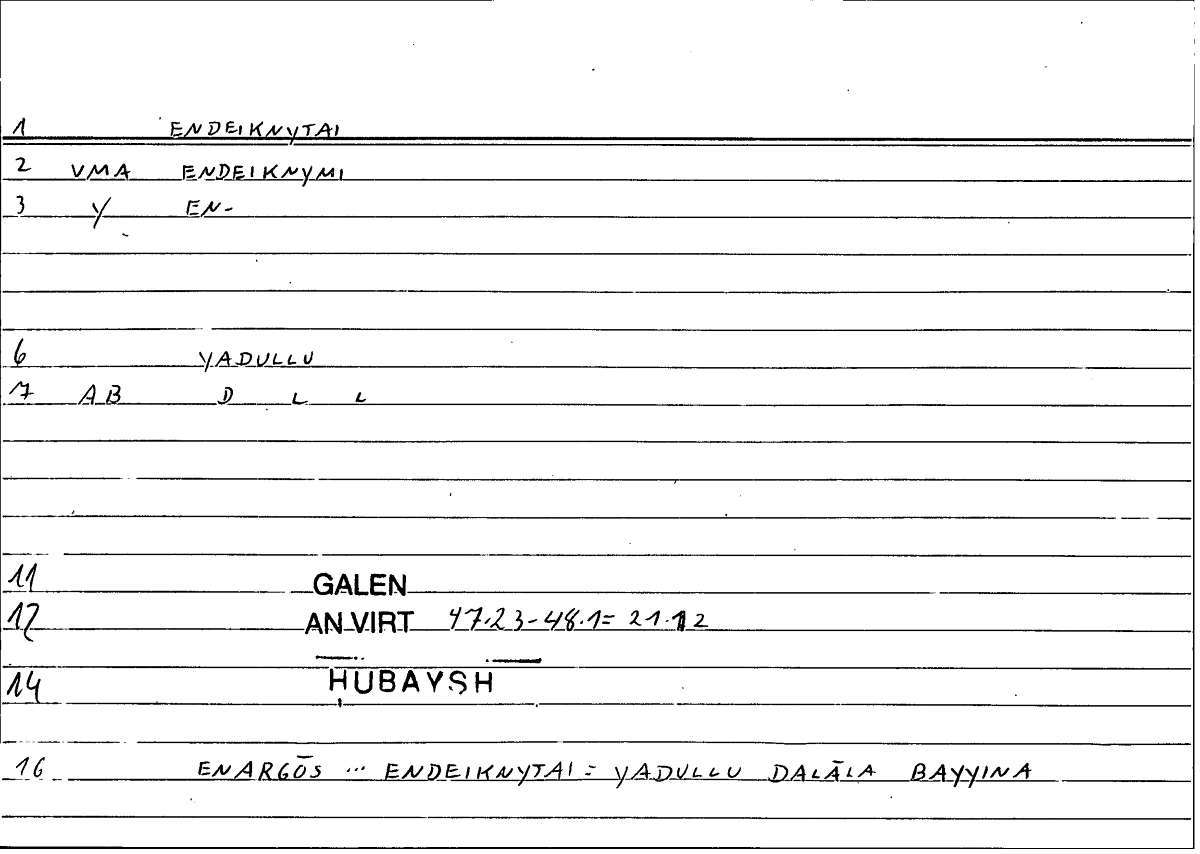 1 ENDEIKNYTAI
2 VMA ENDEIKNYMI
3 Y EN-
6 YADULLU
7 AB D L L
11 GALEN
12 AN VIRT 47.23-48.1= 21.12
14 ḤUBAYSH
16 ENARGŌS ... ENDEIKNYTAI = YADULLU DALĀLA BAYYINA